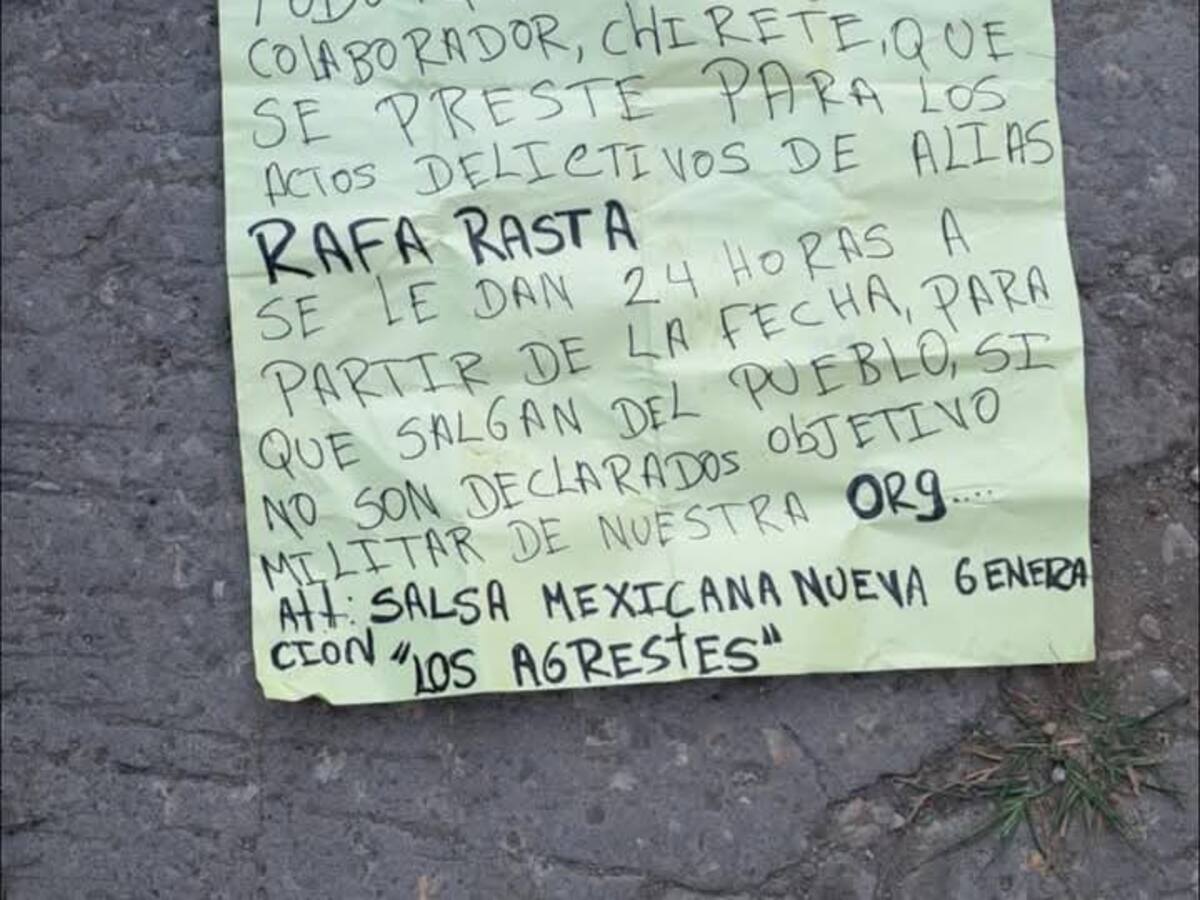 COLABORADOR, CHIRETE, QUE
SE PRESTE PARA LOS
ACTOS DELICTIVOS DE ALIAS
RAFA RASTA
SE LE DAN 24 HORAS A
PARTIR DE LA FECHA, PARA
QUE SALGAN DEL PUEBLO, SI
NO SON DECLARADOS ObJETIVO
MILITAR DE NUESTRA ORg....
Att: SALSA MEXICANA NUEVA GENERA
CION "LOS AGREStES"